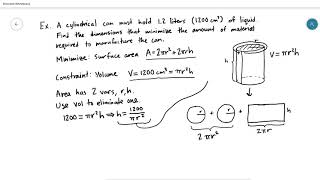 Ex. A cylindrical can must hold 1.2 liters (1200 cm³) of liquid
Find the dimensions that minimize the amount of material
required to manufacture the can.
Minimize: surface area A=2πr²+2πrh
Constraint: Volume V=1200 cm³=πr²h
Area has 2 vars, r,h.
Use vol to eliminate one.
1200=πr²h ⇒ h=1200/πr²
h
V=πr²h
r
+
r
+
h
2πr²
2πr